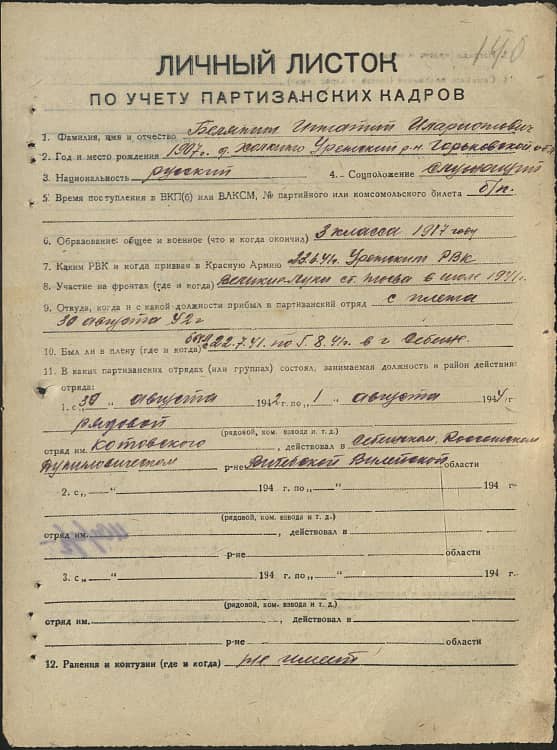 ЛИЧНЫЙ ЛИСТОК
ПО УЧЕТУ ПАРТИЗАНСКИХ КАДРОВ
1. Фамилия, имя и отчество Игнатий Иларионович
2. Год и место рождения 1907 г. д. Уренский р-н Горьковской обл
3. Национальность русский 4. Соцположение служащий
5. Время поступления в ВКП(б) или ВЛКСМ, № партийного или комсомольского билета б/п.
6. Образование: общее и военное (что и когда окончил) 3 класса 1917 году
7. Каким РВК и когда призван в Красную Армию 22.6.41г. Уренским РВК
8. Участие на фронтах (где и когда) Великие-Луки ст. в июле 1941г.
9. Откуда, когда и с какой должности прибыл в партизанский отряд с плена
30 августа 42 г
10. Был ли в плену (где и когда) был с 22.7.41. по 5.8.41г. в г Себеж.
11. В каких партизанских отрядах (или группах) состоял, занимаемая должность и район действия:
отряда:
1. с „30 августа 1942 г. по „1 августа 1944 г-
рядовой
(рядовой, ком. взвода и т. д.)
отряд им. Котовского, действовал в Себежском, Россонском
р-не Витебской Вилейской области
2. с „ “ 194 г. по „ “ 194 г-
(рядовой, ком. взвода и т. д.)
отряд им. , действовал в
р-не области
3. с „ “ 194 г. по „ “ 194 г-
(рядовой, ком. взвода и т. д.)
отряд им. , действовал в
р-не области
12. Ранения и контузии (где и когда) не имеет